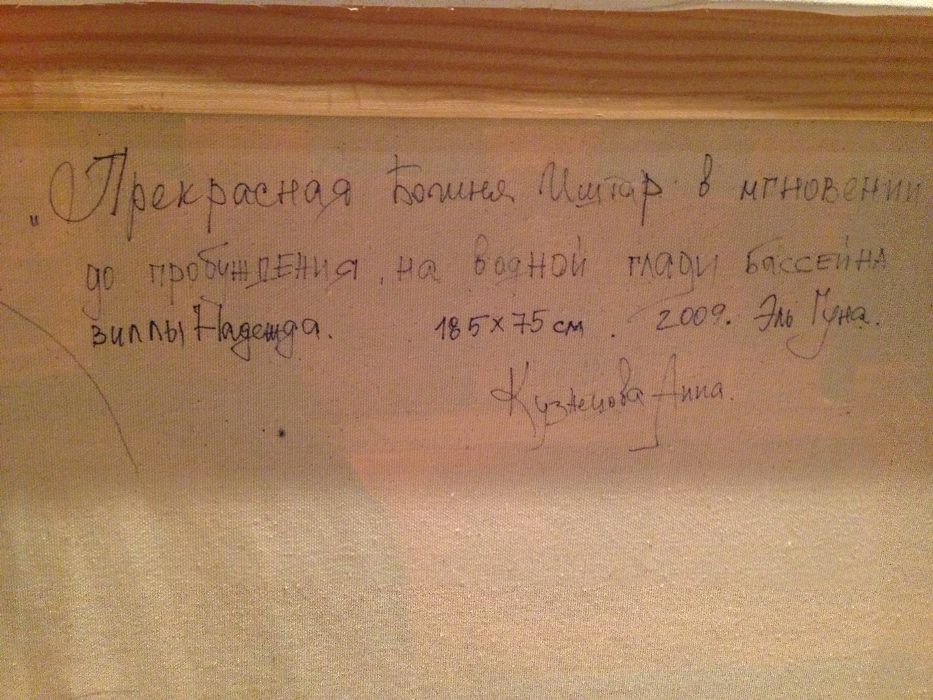 „Прекрасная Богиня Иштар в мгновении
до пробуждения, на водной глади бассейна
виллы Надежда. 185х75 см. 2009. Эль Гуна.
Кузнецова Анна.